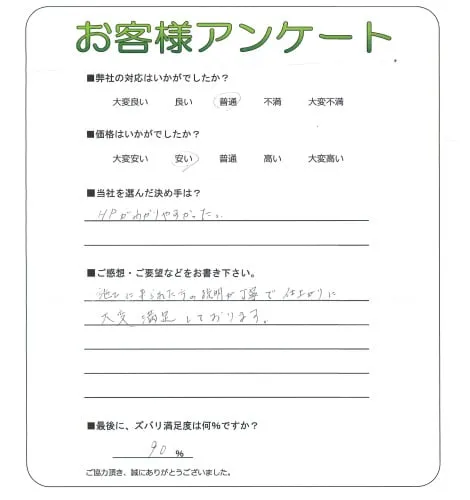 お客様アンケート
■弊社の対応はいかがでしたか？
大変良い 良い 普通 不満 大変不満
■価格はいかがでしたか？
大変安い 安い 普通 高い 大変高い
■当社を選んだ決め手は？
HPがわかりやすかった。
■ご感想・ご要望などをお書き下さい。
に来られた方の説明が丁寧で仕上がりに
大変満足しております。
■最後に、ズバリ満足度は何%ですか？
90 %
ご協力頂き、誠にありがとうございました。